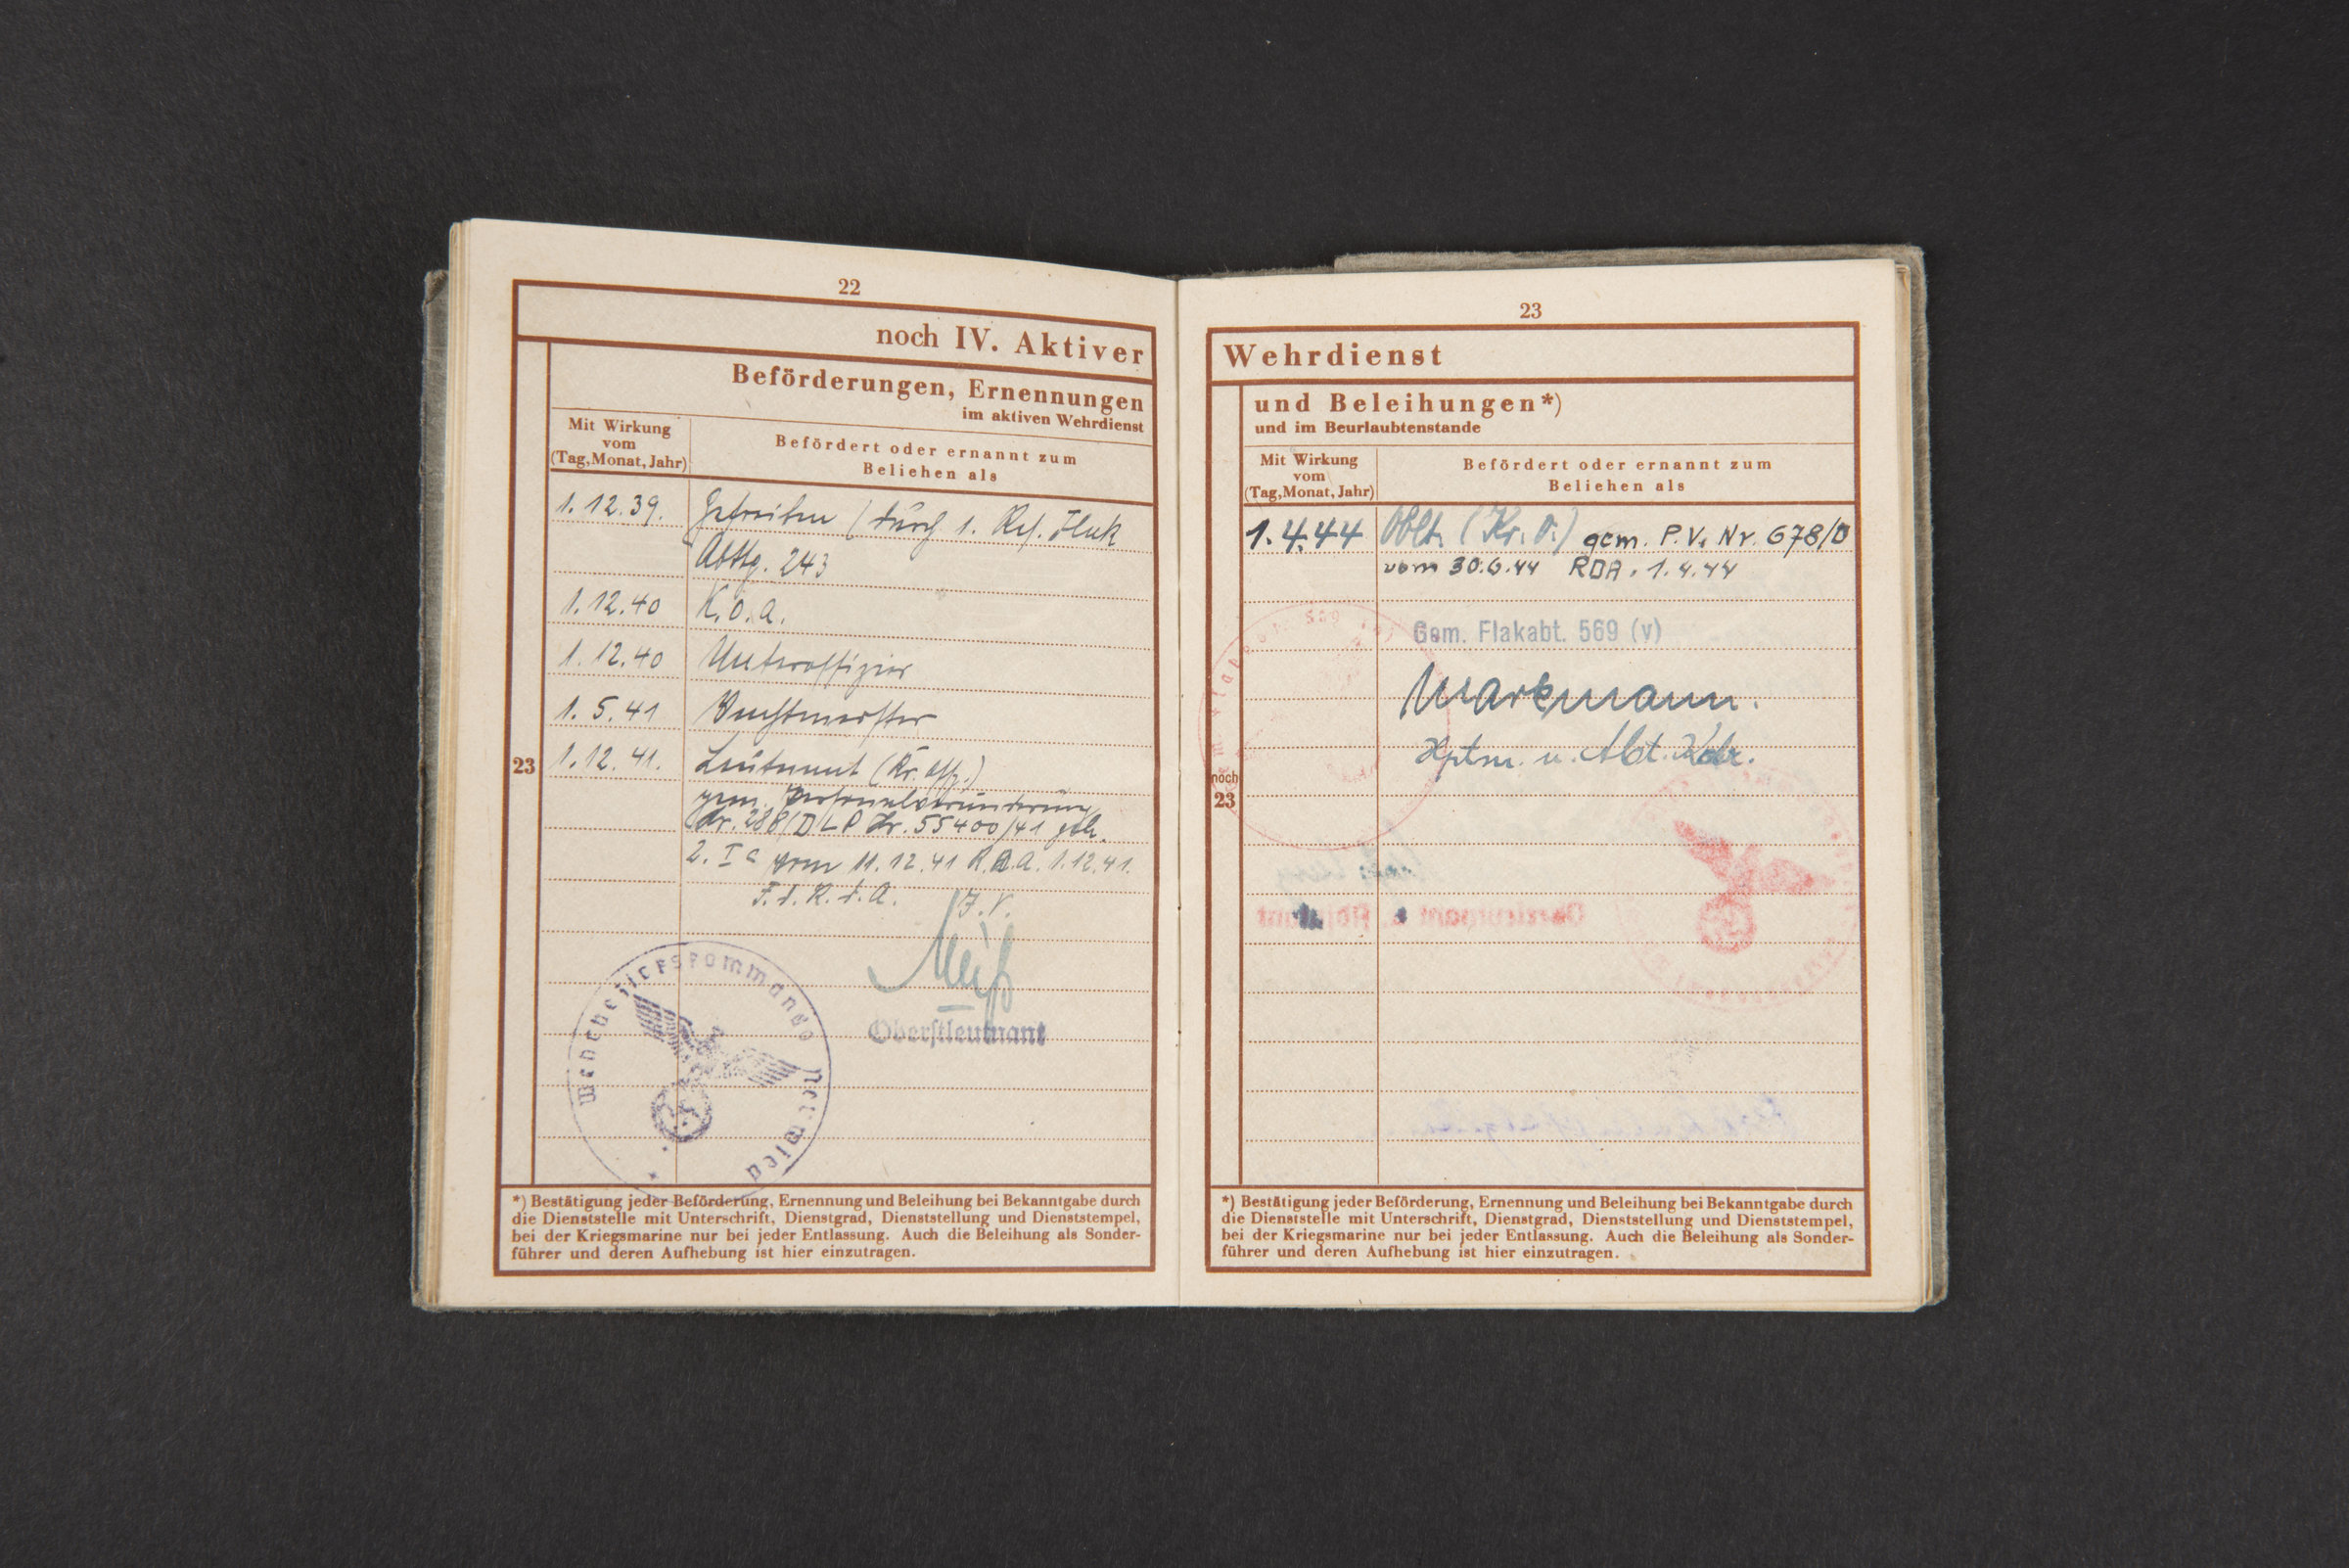 22
noch IV. Aktiver
Beförderungen, Ernennungen
im aktiven Wehrdienst
Mit Wirkung
vom
(Tag, Monat, Jahr)
Befördert oder ernannt zum
Beliehen als
1.12.39. Gefreiten (durch 1. Res. Flak
Abtlg. 243
1.12.40 K.O.A.
1.12.40 Unteroffizier
1.5.41 Wachtmeister
23
1.12.41. Leutnant (Kr. Offz.)
gem. Personalveränderung
Nr. 288/D LP Nr. 55400/41 geh.
2. I c vom 11.12.41 R.D.A. 1.12.41.
F.d.R.d.A. I.V.
Oberstleutnant
Wehrbezirkskommando Neuwied
*) Bestätigung jeder Beförderung, Ernennung und Beleihung bei Bekanntgabe durch
die Dienststelle mit Unterschrift, Dienstgrad, Dienststellung und Dienststempel,
bei der Kriegsmarine nur bei jeder Entlassung. Auch die Beleihung als Sonder-
führer und deren Aufhebung ist hier einzutragen.
23
Wehrdienst
und Beleihungen*)
und im Beurlaubtenstande
Mit Wirkung
vom
(Tag, Monat, Jahr)
Befördert oder ernannt zum
Beliehen als
1.4.44 Oblt. (Kr. O.) gem. P.V. Nr. 678/D
vom 30.6.44 RDA. 1.4.44
Gem. Flakabt. 569 (v)
Markmann.
Hptm. u. Abt. Kdr.
noch
23
*) Bestätigung jeder Beförderung, Ernennung und Beleihung bei Bekanntgabe durch
die Dienststelle mit Unterschrift, Dienstgrad, Dienststellung und Dienststempel,
bei der Kriegsmarine nur bei jeder Entlassung. Auch die Beleihung als Sonder-
führer und deren Aufhebung ist hier einzutragen.